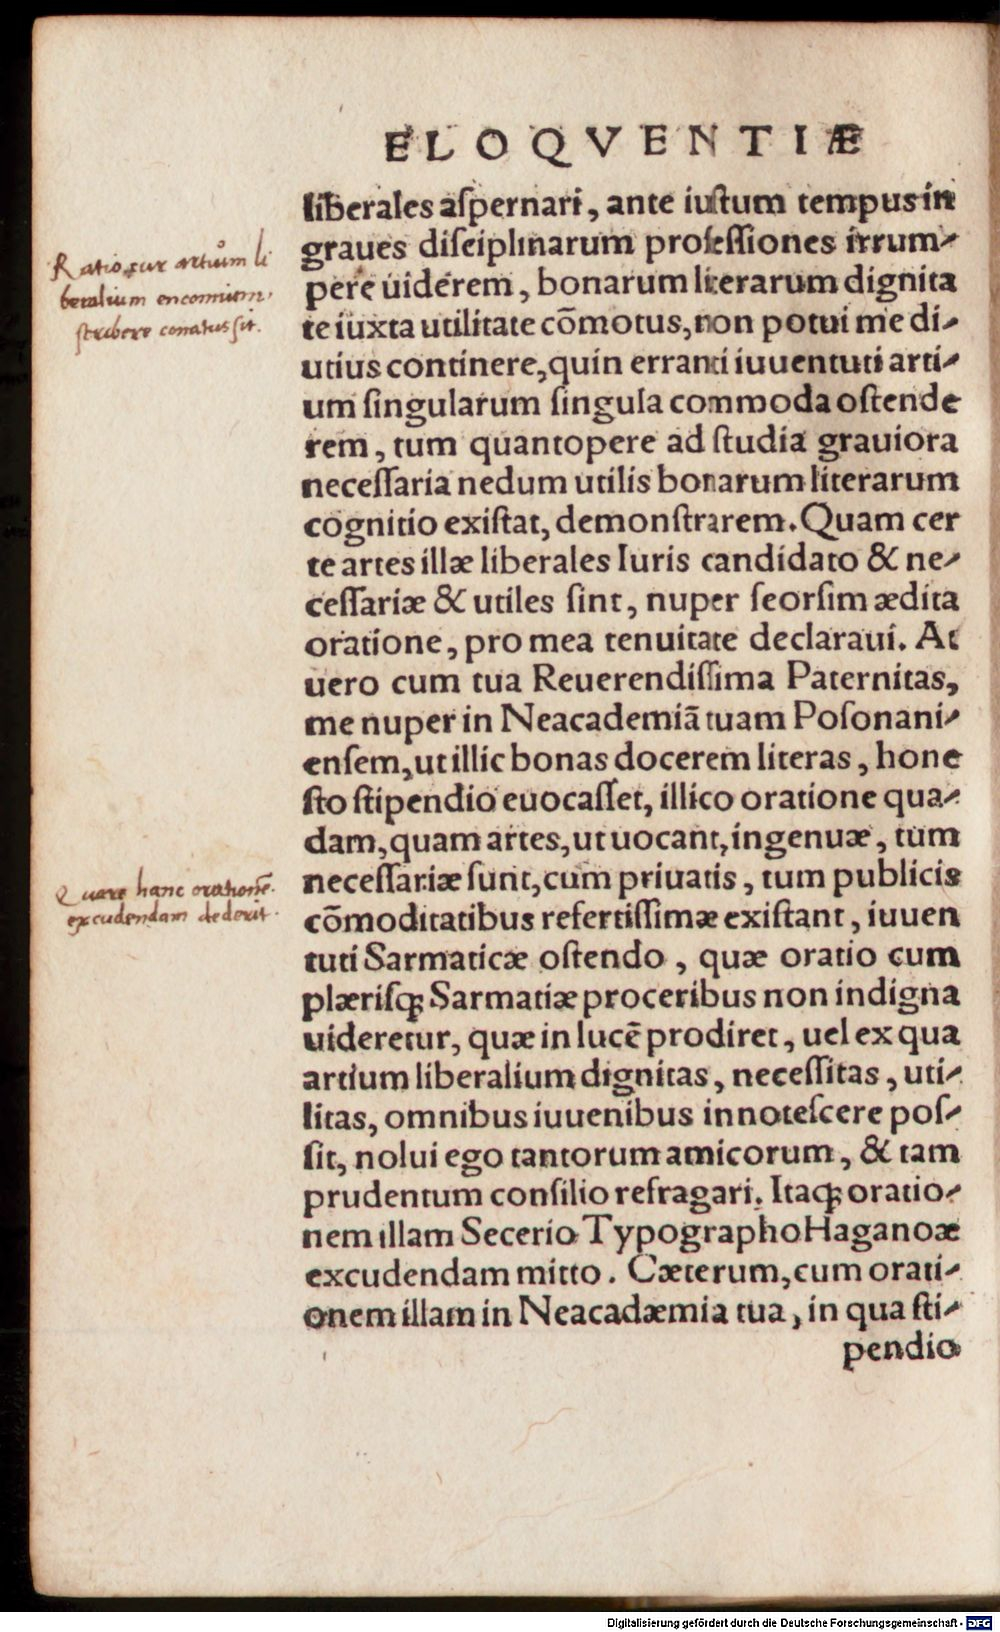 ELOQVENTIÆ
liberales aſpernari, ante iuſtum tempus in
graues diſciplinarum profeſſiones irrum-
pere uiderem, bonarum literarum dignita
te iuxta utilitate cõmotus, non potui me di-
utius continere, quin erranti iuuentuti arti-
um ſingularum ſingula commoda oſtende
rem, tum quantopere ad ſtudia grauiora
neceſſaria nedum utilis bonarum literarum
cognitio exiſtat, demonſtrarem. Quam cer
te artes illæ liberales Iuris candidato & ne-
ceſſariæ & utiles ſint, nuper ſeorſim ædita
oratione, pro mea tenuitate declaraui. At
uero cum tua Reuerendiſſima Paternitas,
me nuper in Neacademiã tuam Poſonani-
enſem, ut illic bonas docerem literas, hone
ſto ſtipendio euocaſſet, illico oratione qua-
dam, quam artes, ut uocant, ingenuæ, tum
neceſſariæ ſunt, cum priuatis, tum publicis
cõmoditatibus refertiſſimæ exiſtant, iuuen
tuti Sarmaticæ oſtendo, quæ oratio cum
plæriſq; Sarmatiæ proceribus non indigna
uideretur, quæ in lucẽ prodiret, uel ex qua
artium liberalium dignitas, neceſſitas, uti-
litas, omnibus iuuenibus innoteſcere poſ-
ſit, nolui ego tantorum amicorum, & tam
prudentum conſilio refragari. Itaq; oratio-
nem illam Secerio Typographo Haganoæ
excudendam mitto. Cæterum, cum orati-
onem illam in Neacadæmia tua, in qua ſti-
pendio
Ratio, cur artiũm li
beralium encomium
ſcribere conatus ſit.
Quare hanc orationẽ
excudendam dederit.
Digitalisierung gefördert durch die Deutsche Forschungsgemeinschaft - DFG